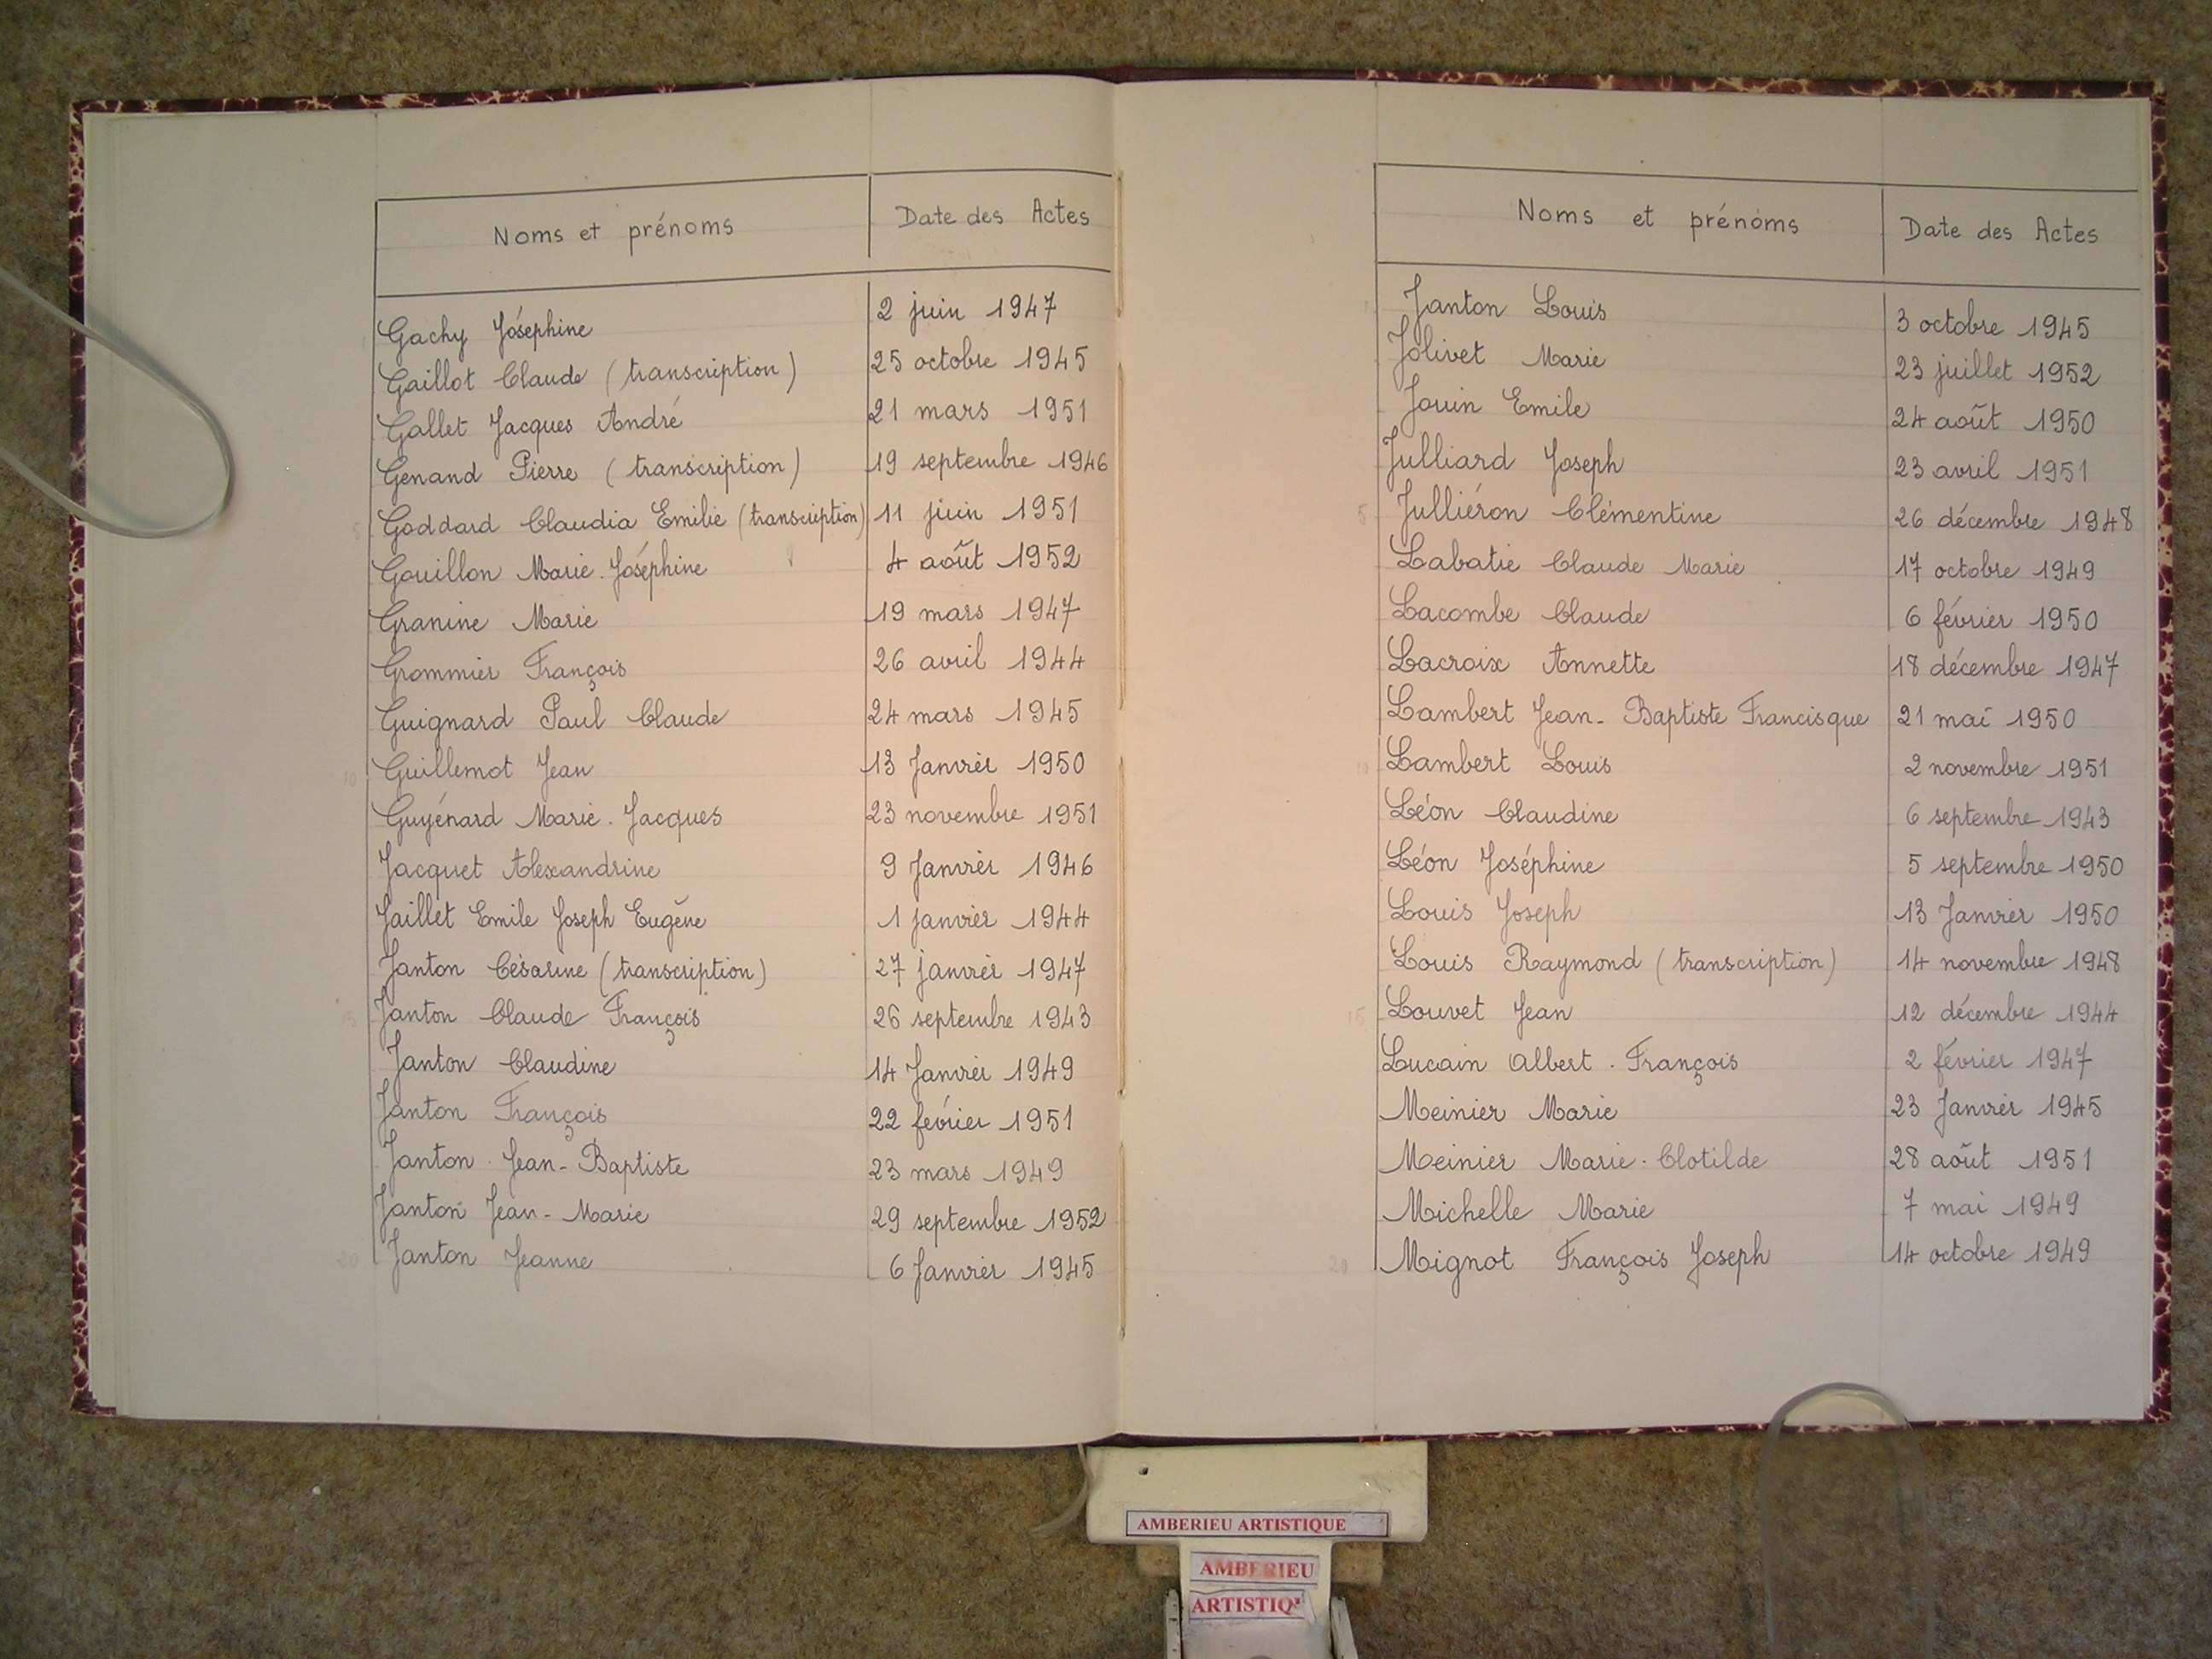 Noms et prénoms Date des Actes
Gachy Joséphine 2 juin 1947
Gaillot Claude (transcription) 25 octobre 1945
Gallet Jacques André 21 mars 1951
Genand Pierre (transcription) 19 septembre 1946
5 Goddard Claudia Emilie (transcription) 11 juin 1951
Gouillon Marie-Joséphine 4 août 1952
Granine Marie 19 mars 1947
Grommier François 26 avril 1944
Guignard Paul Claude 24 mars 1945
10 Guillemot Jean 13 Janvier 1950
Guyénard Marie-Jacques 23 novembre 1951
Jacquet Alexandrine 9 Janvier 1946
Jaillet Emile Joseph Eugène 1 janvier 1944
Janton Césarine (transcription) 27 janvier 1947
15 Janton Claude François 26 septembre 1943
Janton Claudine 14 Janvier 1949
Janton François 22 février 1951
Janton Jean-Baptiste 23 mars 1949
Janton Jean-Marie 29 septembre 1952
20 Janton Jeanne 6 Janvier 1945
Noms et prénoms Date des Actes
Janton Louis 3 octobre 1945
Jolivet Marie 23 juillet 1952
Jouin Emile 24 août 1950
Julliard Joseph 23 avril 1951
5 Julliéron Clémentine 26 décembre 1948
Labatie Claude Marie 17 octobre 1949
Lacombe Claude 6 février 1950
Lacroix Annette 18 décembre 1947
Lambert Jean-Baptiste Francisque 21 mai 1950
10 Lambert Louis 2 novembre 1951
Léon Claudine 6 septembre 1943
Léon Joséphine 5 septembre 1950
Louis Joseph 13 Janvier 1950
Louis Raymond (transcription) 14 novembre 1948
15 Louvet Jean 12 décembre 1944
Lucain Albert-François 2 février 1947
Meinier Marie 23 Janvier 1945
Meinier Marie-Clotilde 28 août 1951
Michelle Marie 7 mai 1949
20 Mignot François Joseph 14 octobre 1949
AMBERIEU ARTISTIQUE
AMBERIEU
ARTISTIQ